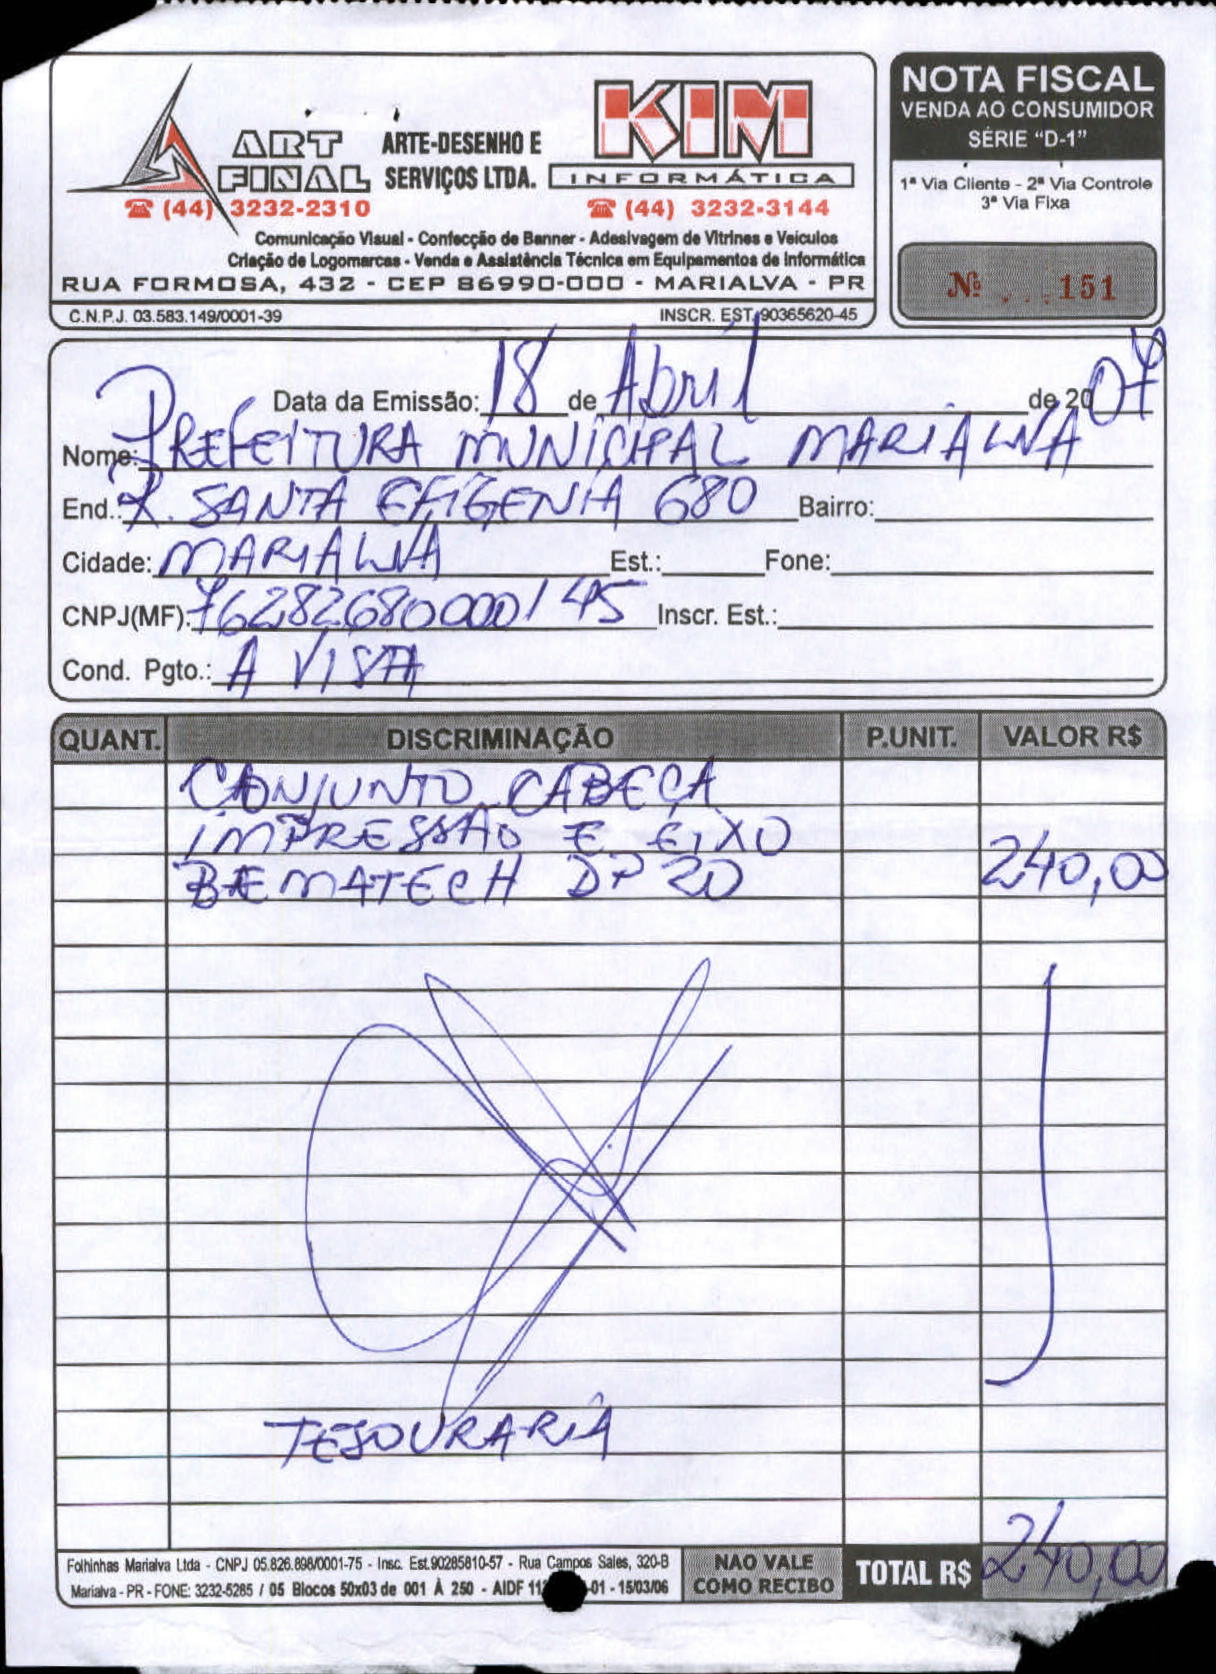 ART FINAL
ARTE-DESENHO E SERVIÇOS LTDA.
☎ (44) 3232-2310
KIM
INFORMÁTICA
☎ (44) 3232-3144
Comunicação Visual - Confecção de Banner - Adesivagem de Vitrines e Veículos
Criação de Logomarcas - Venda e Assistência Técnica em Equipamentos de Informática
RUA FORMOSA, 432 - CEP 86990-000 - MARIALVA - PR
C.N.P.J. 03.583.149/0001-39 INSCR. EST. 90365620-45
NOTA FISCAL
VENDA AO CONSUMIDOR
SÉRIE "D-1"
1ª Via Cliente - 2ª Via Controle
3ª Via Fixa
Nº 151
Data da Emissão: 18 de Abril de 2007
Nome: PREFEITURA MUNICIPAL MARIALVA
End.: R. SANTA EFIGENIA 680 Bairro:
Cidade: MARIALVA Est.: Fone:
CNPJ(MF): 76282680000/45 Inscr. Est.:
Cond. Pgto.: A VISTA
QUANT. DISCRIMINAÇÃO P.UNIT. VALOR R$
CONJUNTO CABEÇA
IMPRESSÃO E EIXO
BEMATECH DP 20 240,00
TESOURARIA
Folhinhas Marialva Ltda - CNPJ 05.826.898/0001-75 - Insc. Est.90285810-57 - Rua Campos Sales, 320-B
Marialva - PR - FONE: 3232-5285 / 05 Blocos 50x03 de 001 À 250 - AIDF -01 - 15/03/06
NAO VALE
COMO RECIBO
TOTAL R$ 240,00